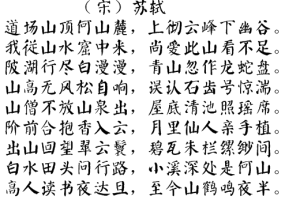 （宋）苏轼
道场山顶何山麓，上彻云峰下幽谷。
我从山水窟中来，尚爱此山看不足。
陂湖行尽白漫漫，青山忽作龙蛇盘。
山高无风松自响，误认石齿号惊湍。
山僧不放山泉出，屋底清池照瑶席。
阶前合抱香入云，月里仙人亲手植。
出山回望翠云鬟，碧瓦朱栏缥缈间。
白水田头问行路，小溪深处是何山。
高人读书夜达旦，至今山鹤鸣夜半。